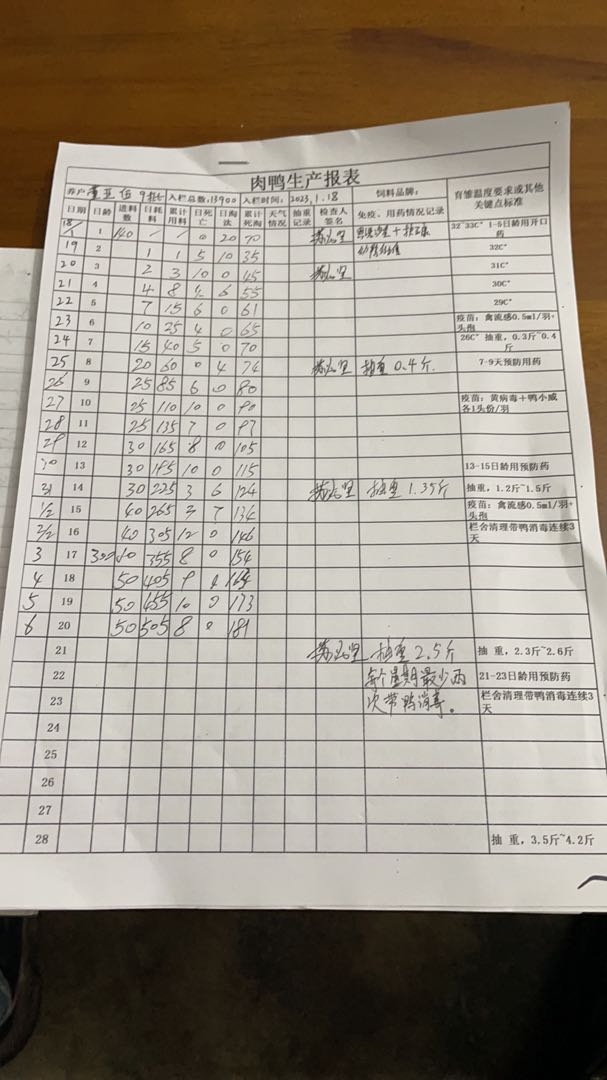 肉鸭生产报表
养户 亚伍 9批 入栏总数:13900 入栏时间:2023.1.18 饲料品牌: 育雏温度要求或其他关键点标准
日期 日龄 进料数 日耗料 累计用料 日死亡 日淘汰 累计死淘 天气情况 抽重记录 检查人签名 免疫、用药情况记录
18/1 1 140 / / 0 20 32¯33C° 1-5日龄用开口药
19 2 1 1 5 10 35 32C°
20 3 2 3 10 0 45 31C°
21 4 4 8 6 55 30C°
22 5 7 15 6 0 61 29C°
23 6 10 25 4 0 65 疫苗: 禽流感0.5ml/羽+头孢
24 7 15 40 5 0 70 26C° 抽重, 0.3斤~0.4斤
25 8 20 60 0 4 74 抽重 0.4斤. 7-9天预防用药
26 9 25 85 6 0 80
27 10 25 110 10 0 90 疫苗: 黄病毒+鸭小威各1头份/羽
28 11 25 135 7 0 97
29 12 30 165 8 0 105
30 13 30 195 10 0 115 13-15日龄用预防药
31 14 30 225 3 6 124 抽重 1.35斤 抽重, 1.2斤~1.5斤
1/2 15 40 265 3 7 134 疫苗: 禽流感0.5ml/羽+头孢
2/2 16 40 305 12 0 146 栏舍清理带鸭消毒连续3天
3 17 300 50 355 8 0 154
4 18 50 405 164
5 19 50 455 10 0 173
6 20 50 505 8 0 181
21 抽重 2.5斤 抽 重, 2.3斤~2.6斤
22 每个星期最少两 21-23日龄用预防药
23 次带鸭消毒。 栏舍清理带鸭消毒连续3天
24
25
26
27
28 抽 重, 3.5斤~4.2斤